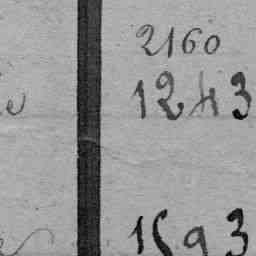 2160
1243
1593